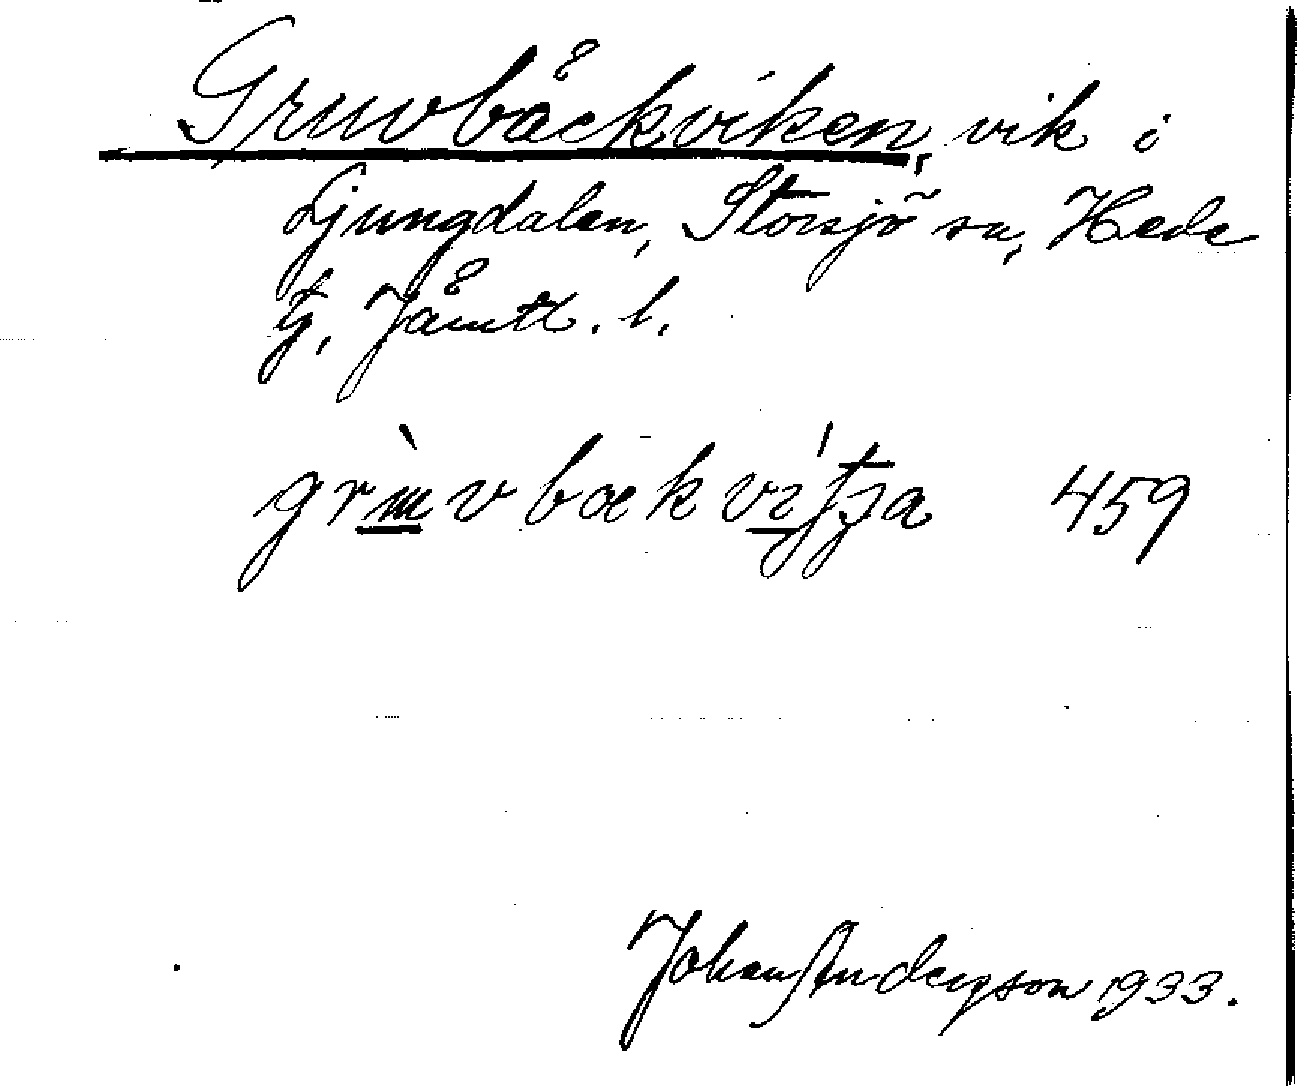 Gruvbäckviken, vik i
Ljungdalen, Storsjö sn, Hede
tg, Jämtl. l.
grùvbækvítʃa 459
Johan Anderson 1933.